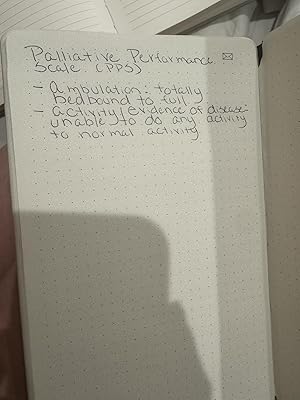 Palliative Performance
Scale (PPS)
- ambulation: totally
bedbound to full
- activity/evidence of disease:
unable to do any activity
to normal activity